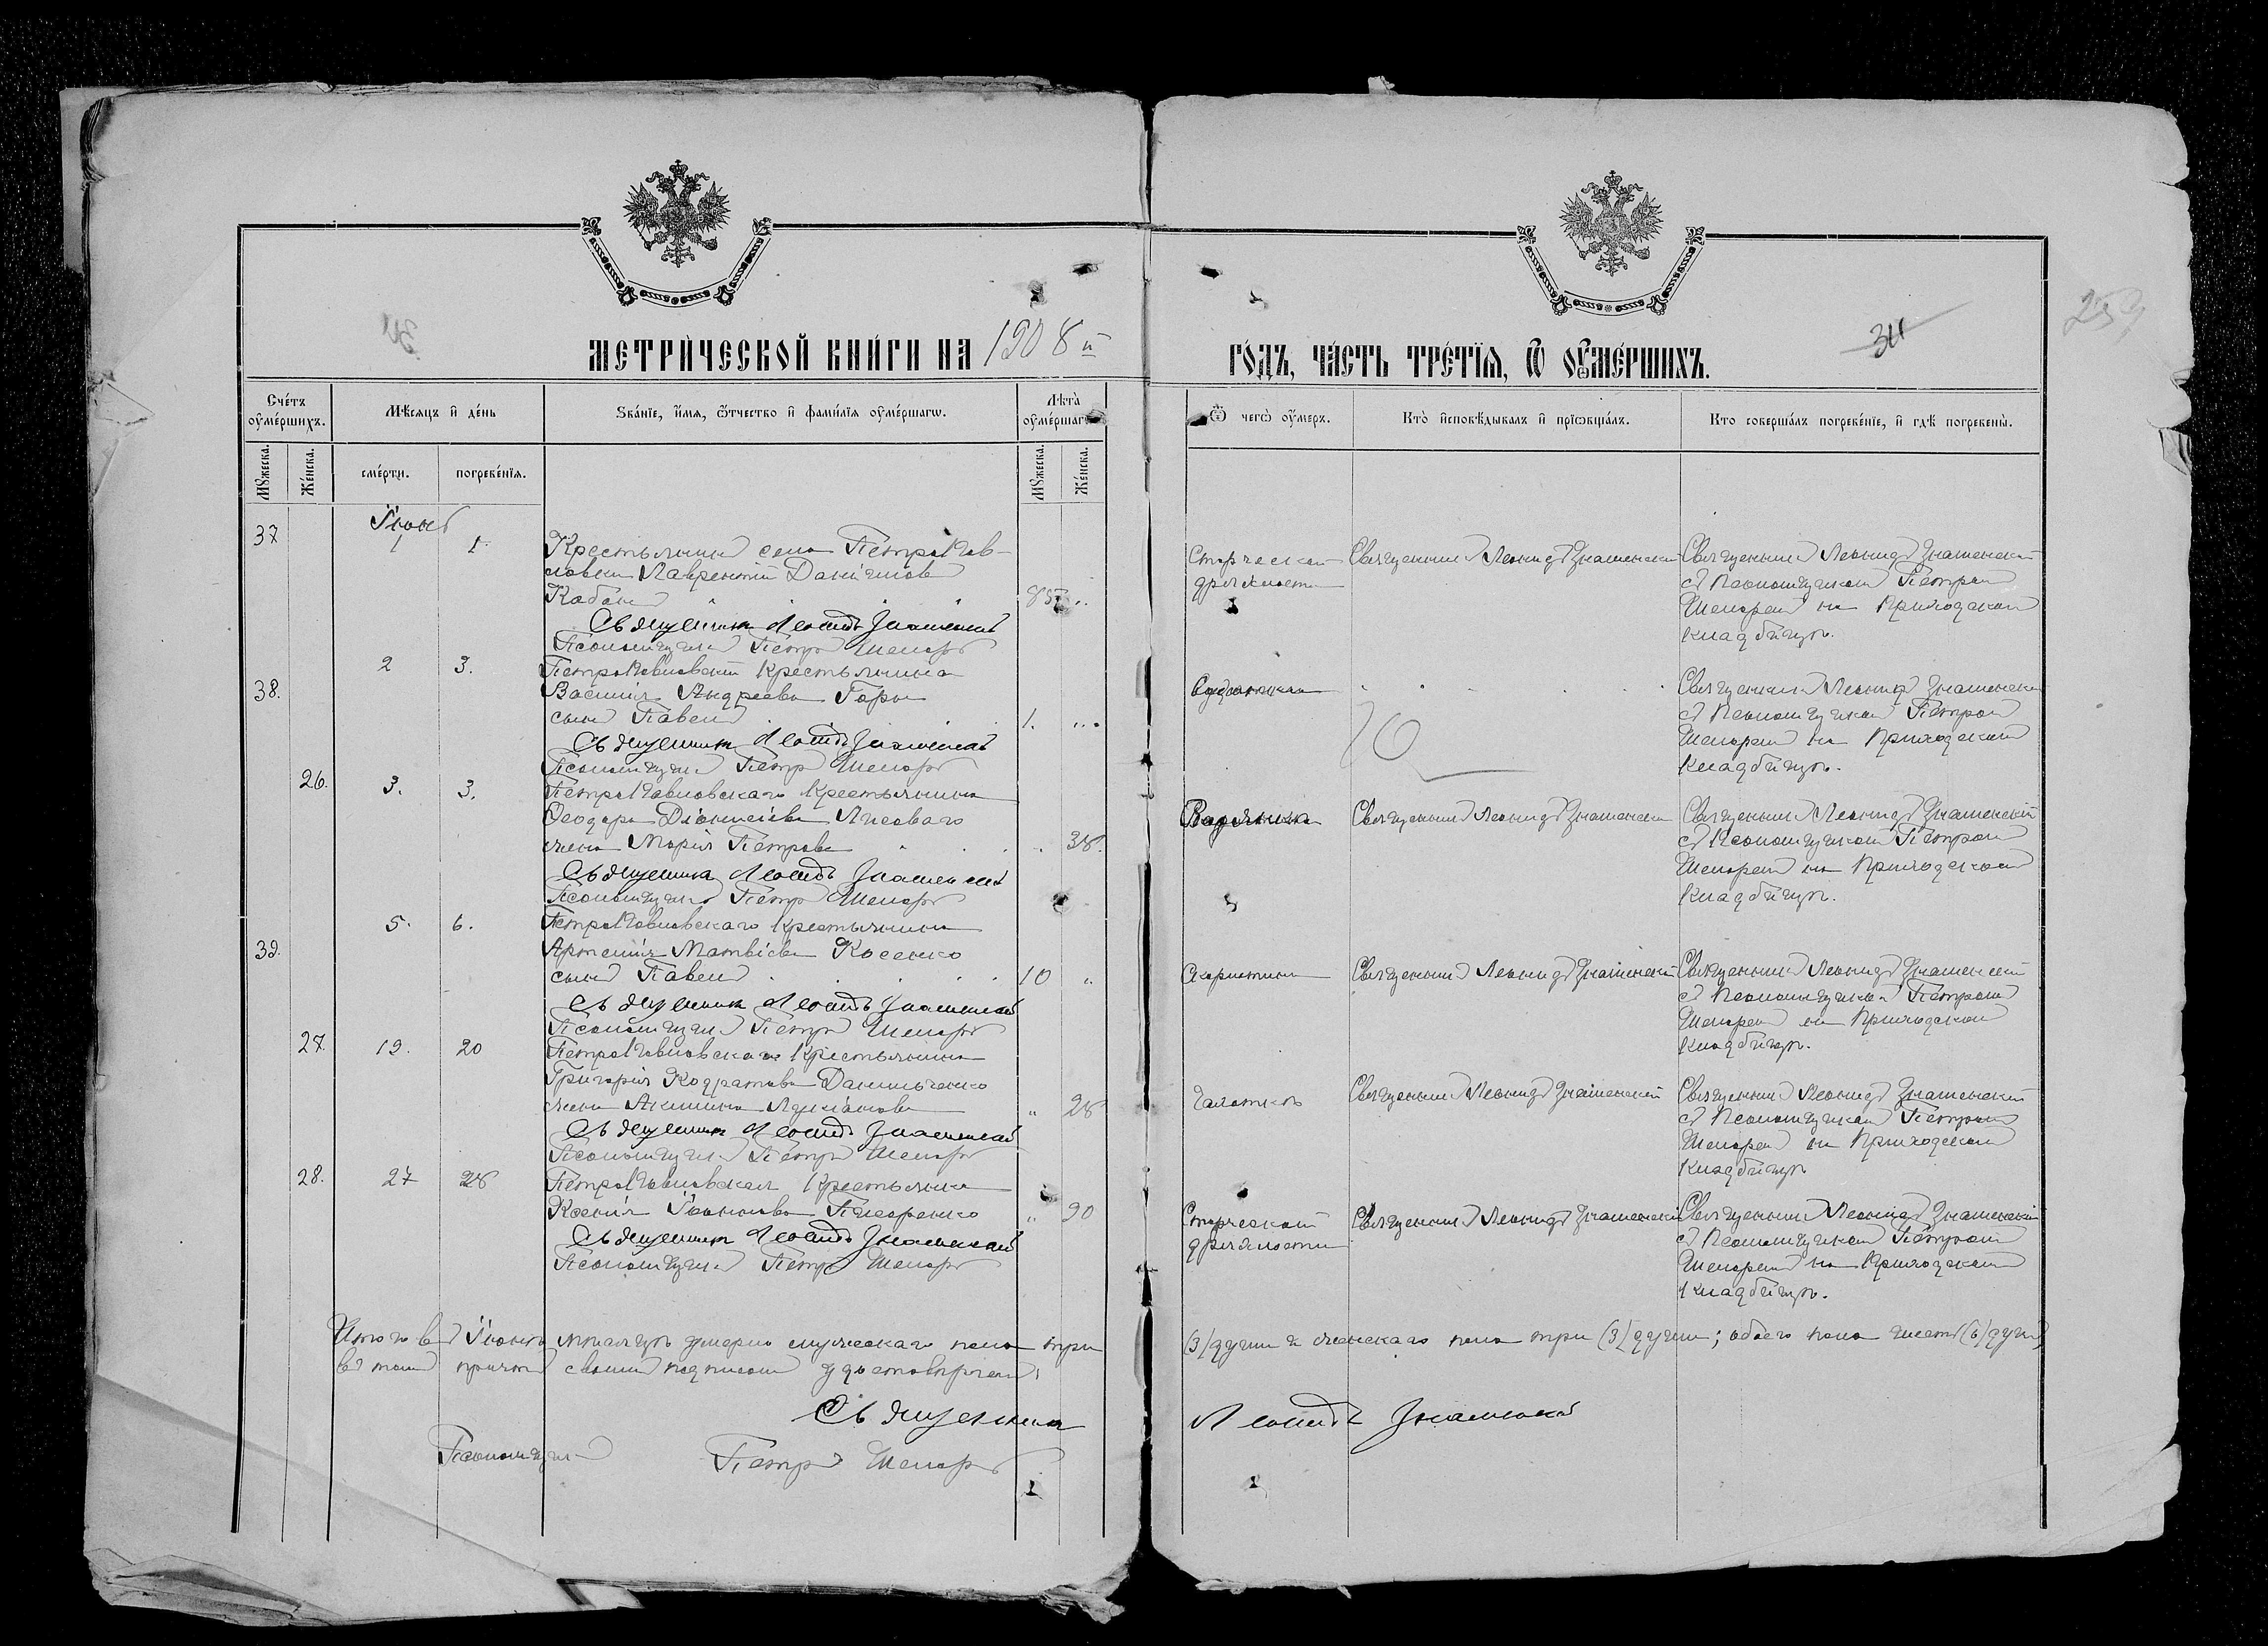 34
259
МЕТРИ́ЧЕСКОЙ КНИ́ГИ НА 1908й
ГО́ДЪ, ЧА́СТЬ ТРЕ́ТЇѦ, Ѿ ОУМЕ́РШИХЪ.
Сче́тъ оумéршихъ.
Мѣ́сѧцъ и҆ де́нь
Зва́нїе, и҆́мѧ, ѻ҆́тчество и҆ фами́лїѧ оумéршагѡ.
Лѣта̀ оумéршагѡ
Ѿ чегѡ̀ оу҆́меръ.
Кто̀ и҆сповѣ́дывалъ и҆ прїѡбща́лъ.
Кто соверша́лъ погребе́нїе, и҆ гдѣ̀ погребены̀.
Мꙋ́жеска.
Же́нска.
сме́рти.
погребе́нїѧ.
Мꙋ́жеска.
Же́нска.
Іюнь
37 1 1.
Крестьянинъ села Петропав-
ловки Лаврентій Даніиловъ
Кобанъ 85
Священникъ Леонидъ Знаменскій
Псаломщикъ Петръ
Старческой
дряхлости
Священникъ Леонидъ Знаменскій
Священникъ Леонидъ Знаменскій
съ Псаломщикомъ Петромъ
на приходскомъ
кладбищѣ.
38. 2 3.
Петропавловскаго крестьянина
Василія Андреева
сынъ Павелъ 1.
Священникъ Леонидъ Знаменскій
Псаломщикъ Петръ
Священникъ Леонидъ Знаменскій
съ Псаломщикомъ Петромъ
на приходскомъ
кладбищѣ.
26. 3. 3.
Петропавловскаго крестьянина
Ѳеодора Діонисіева Лисоваго
жена Марія Петрова 38.
Священникъ Леонидъ Знаменскій
Псаломщикъ Петръ
Водянка
Священникъ Леонидъ Знаменскій
Священникъ Леонидъ Знаменскій
съ Псаломщикомъ Петромъ
на приходскомъ
кладбищѣ.
39. 5. 6.
Петропавловскаго крестьянина
Артемія Матвіева Косенко
сынъ Павелъ 10 "
Священникъ Леонидъ Знаменскій
Псаломщикъ Петръ
Скарлатины
Священникъ Леонидъ Знаменскій
Священникъ Леонидъ Знаменскій
съ Псаломщикомъ Петромъ
на приходскомъ
кладбищѣ.
27. 19. 20
Петропавловскаго крестьянина
Григорія Кодратова Данильченко
жена Акилина Лукіанова " 28
Священникъ Леонидъ Знаменскій
Псаломщикъ Петръ
Чахотков
Священникъ Леонидъ Знаменскій
Священникъ Леонидъ Знаменскій
съ Псаломщикомъ Петромъ
на приходскомъ
кладбищѣ
28. 27 28
Петропавловская крестьянка
Ксенія Іоаннова " 90
Священникъ Леонидъ Знаменскій
Псаломщикъ Петръ
Старческой
дряхлости
Священникъ Леонидъ Знаменскій
Священникъ Леонидъ Знаменскій
съ Псаломщикомъ Петромъ
на приходскомъ
кладбищѣ.
Итого въ Іюнѣ мѣсяцѣ умерло мужескаго пола три (3) души и женскаго пола три (3) души; обоего пола шесть (6) душъ
въ томъ причтъ своимъ подписомъ удостовѣряемъ:
Священникъ Леонидъ Знаменскій
Псаломщикъ Петръ